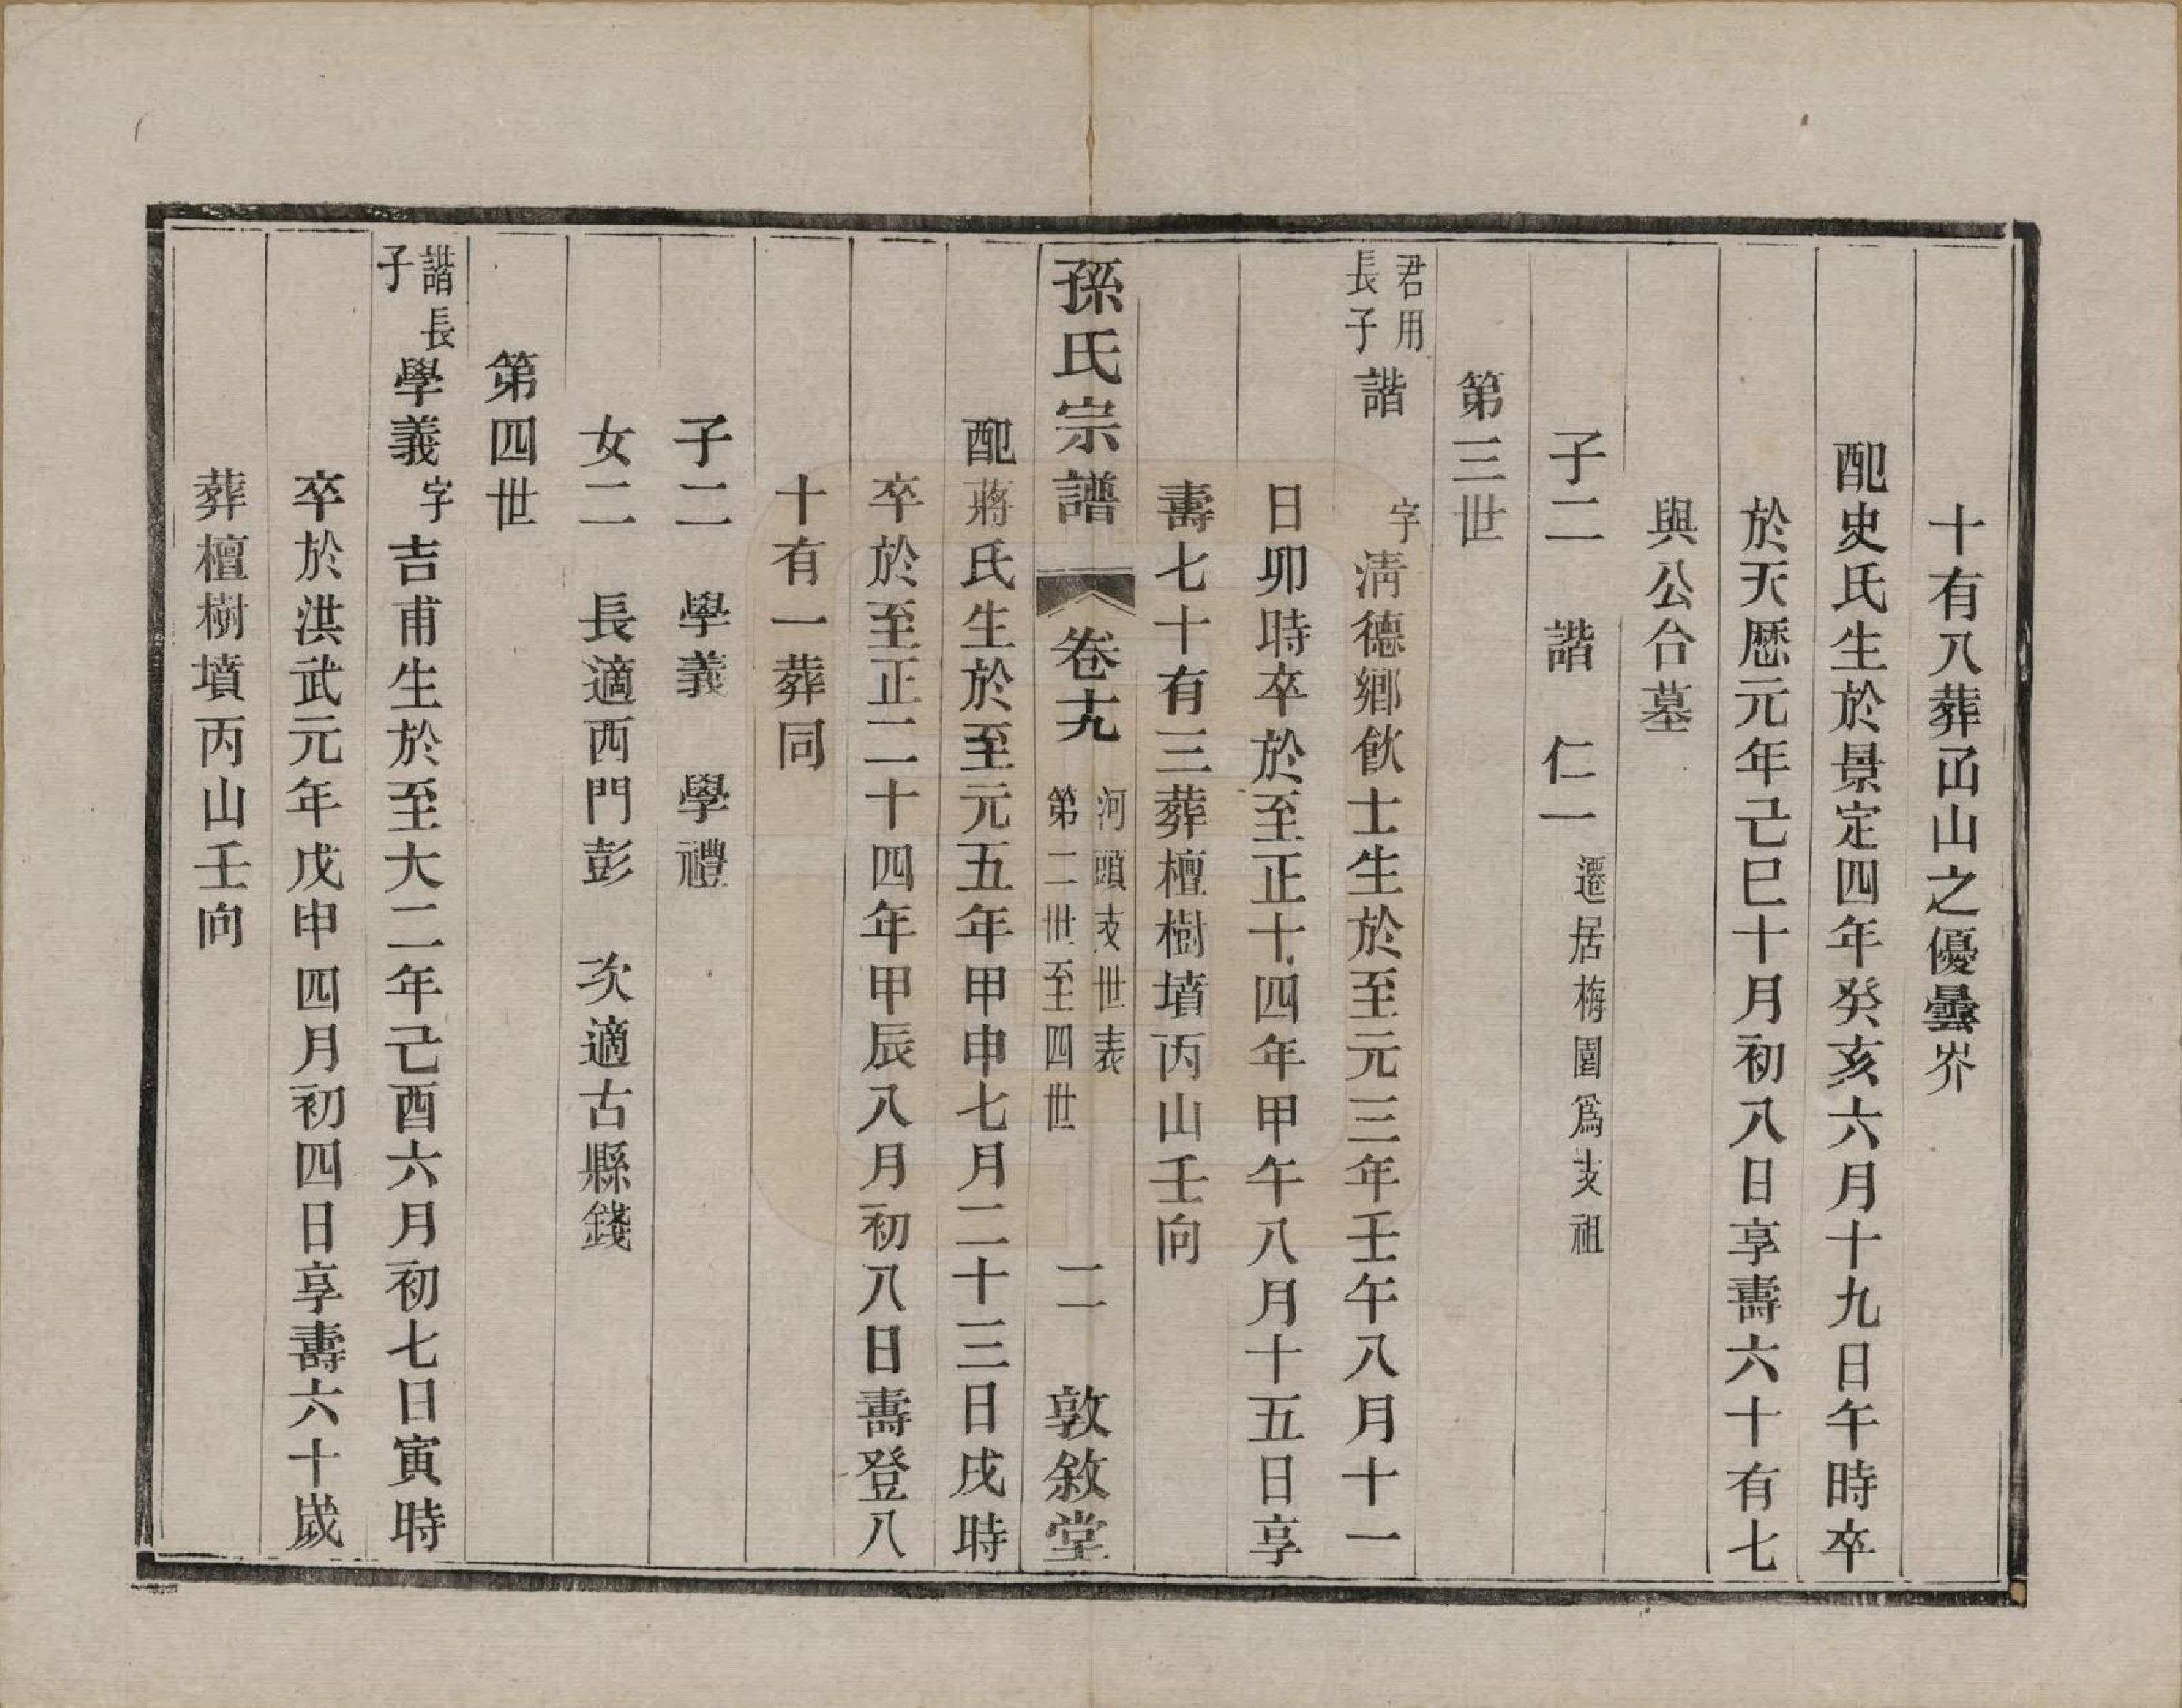 十有八葬函山之優曇岕
配史氏生於景定四年癸亥六月十九日午時卒
於天歷元年己巳十月初八日享壽六十有七
與公合墓
子二　諧　仁一遷居梅園爲支祖
第三世
君用長子諧　字清德鄉飲士生於至元三年壬午八月十一
日卯時卒於至正十四年甲午八月十五日享
壽七十有三葬檀樹墳丙山壬向
孫氏宗譜　卷十九　河頭支世表　第二世至四世　二　敦敘堂
配蔣氏生於至元五年甲申七月二十三日戌時
卒於至正二十四年甲辰八月初八日壽登八
十有一葬同
子二　學義　學禮
女二　長適西門彭　次適古縣錢
第四世
諧長子學義字吉甫生於至大二年己酉六月初七日寅時
卒於洪武元年戊申四月初四日享壽六十歲
葬檀樹墳丙山壬向